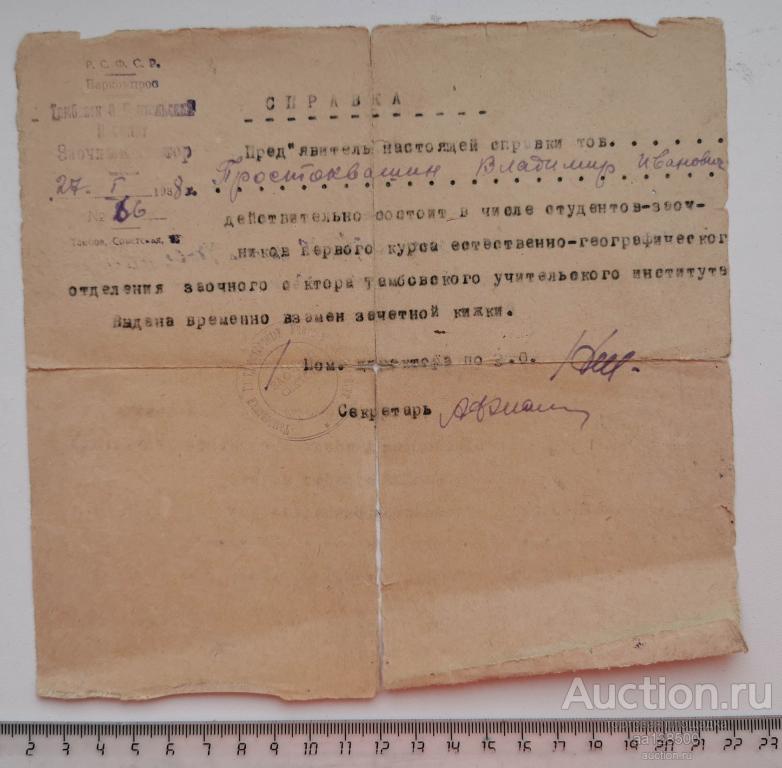 Р. С. Ф. С. Р.
Наркомпрос
Тамбовский Учительский
Институт
Заочный сектор
27 - I 1938 г.
№ 66
Тамбов, Советская,
СПРАВКА
Пред"явитель настоящей справки тов. . . . . .
Простоквашин Владимир Иванович
действительно состоит в числе студентов-заоч-
ников первого курса естественно-географического
отделения заочного сектора Тамбовского учительского института
Выдана временно взамен зачетной кижки.
Пом. директора по З.О.
Секретарь
Auction.ru
auction.ru
2 3 4 5 6 7 8 9 10 11 12 13 14 15 16 17 18 19 20 21 22 23